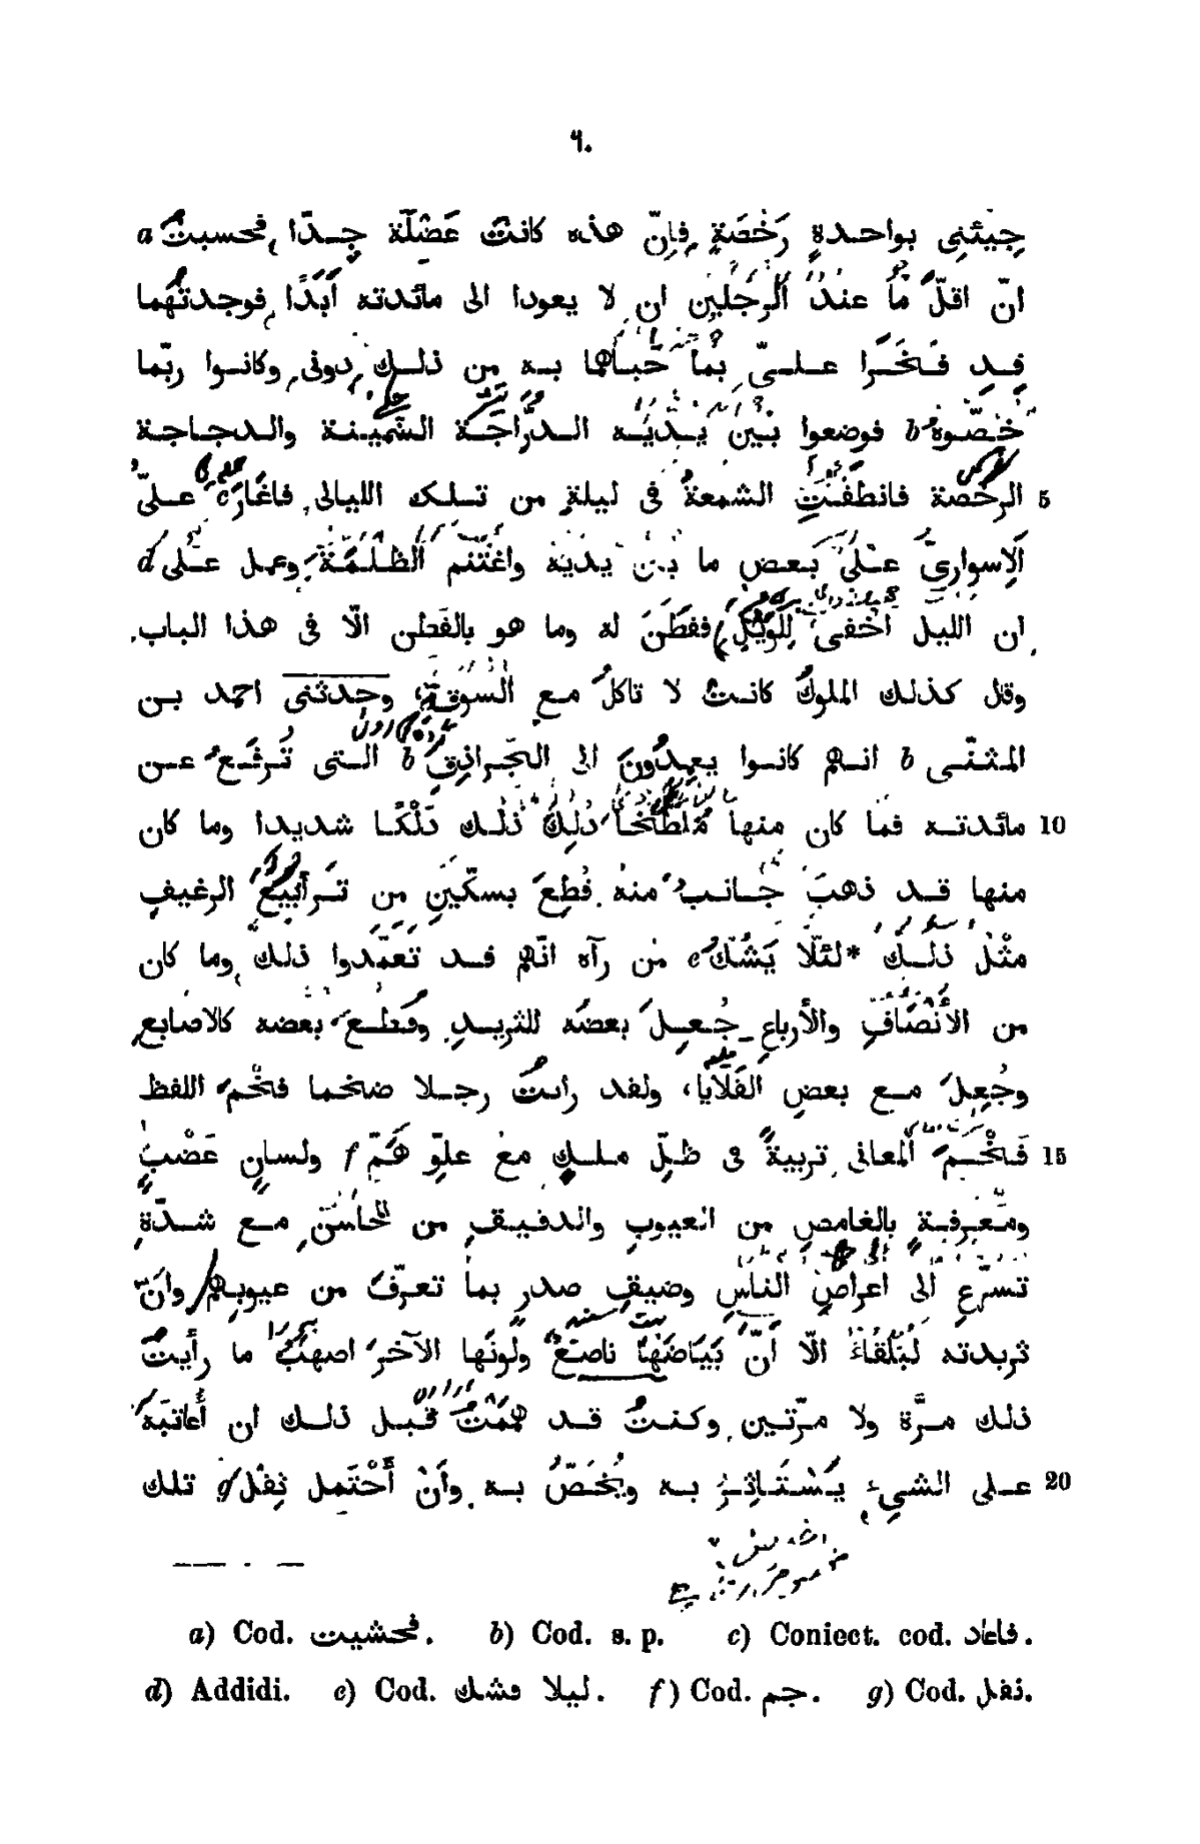 ٦٠
جِيئنى بواحدةٍ رَخْصَةٍ فإنّ هذه كانت عَضِلَة جِدّا فحسبتُ a
انّ اقلّ ما عند الرَجُلين ان لا يعودا الى مائدته أبَدًا فوجدتُهما
قد فَخَرَا علىّ بما حَباهما به من ذلك دونى وكانوا ربّما
خصّوه b فوضعوا بين يديه الدُرّاجَة السَمِينة والدجاجة
الرخصة فانطفئت الشمعةُ فى ليلةٍ من تلك الليالى فاغَارَ c علىّ 5
الاسوارىّ على بعض ما بين يديه واغْتَنَم الظُلْمَةَ وعمل على d
ان الليل اخْفى لِلوَيْلِ ففَطَنَ له وما هو بالفَطن الّا فى هذا الباب
وقال كذلك الملوكُ كانت لا تاكلُ مع السُوقة، وحدثنى احمد بن
المثنّى b انهم كانوا يعمِدُونَ الى الجَرادِق b التى تُرفَعُ عن
مائدته فما كان منها مُلَطَّخًا دُلِكَ ذلك دَلْكًا شديدا وما كان 10
منها قد ذهبَ جانبٌ منه قُطِعَ بسكّينٍ من تَرابيعُ الرغيفِ
مِثْلُ ذلك *لئلّا يَشُكّ e مَن رآه انّهم قد تعمّدوا ذلك وما كان
من الأَنْصَافِ والأرباعِ جُعِلَ بعضُه للثريدِ وقُطِعَ بعضه كالاصابع
وجُعِلَ مع بعضِ القَلايا، ولقد رأيتُ رجلا ضخما فَخْمَ اللفظ
فَخْمَ المعانى تربيةً فى ظِلّ ملكٍ معَ علوِّ هَمّ f ولسانٍ عَضْبٍ 15
ومَعرفةٍ بالغامض من العيوبِ والدقيقِ من المحاسن مع شدّةِ
تسرّعٍ الى اعراضِ الناسِ وضيقِ صدرٍ بما تعرّفَ من عيوبهم وانّ
ثريدته لَبَلْقاء الّا أنّ بَيَاضَها ناصعٌ ولونَها الآخرَ اصهبُ ما رأيتُ
ذلك مَرَّة ولا مرّتين وكنتُ قد هَمَمْتُ قَبل ذلك ان أُعاتبَه
على الشىء يَسْتَاثِرُ به ويُخَصّ به وأَنْ أَحْتَمِل ثِقْلَ g تلك 20
a) Cod. فحشيت. b) Cod. s. p. c) Coniect. cod. فاعاد.
d) Addidi. e) Cod. ليلا ڡشك. f) Cod. جم. g) Cod. نفل.